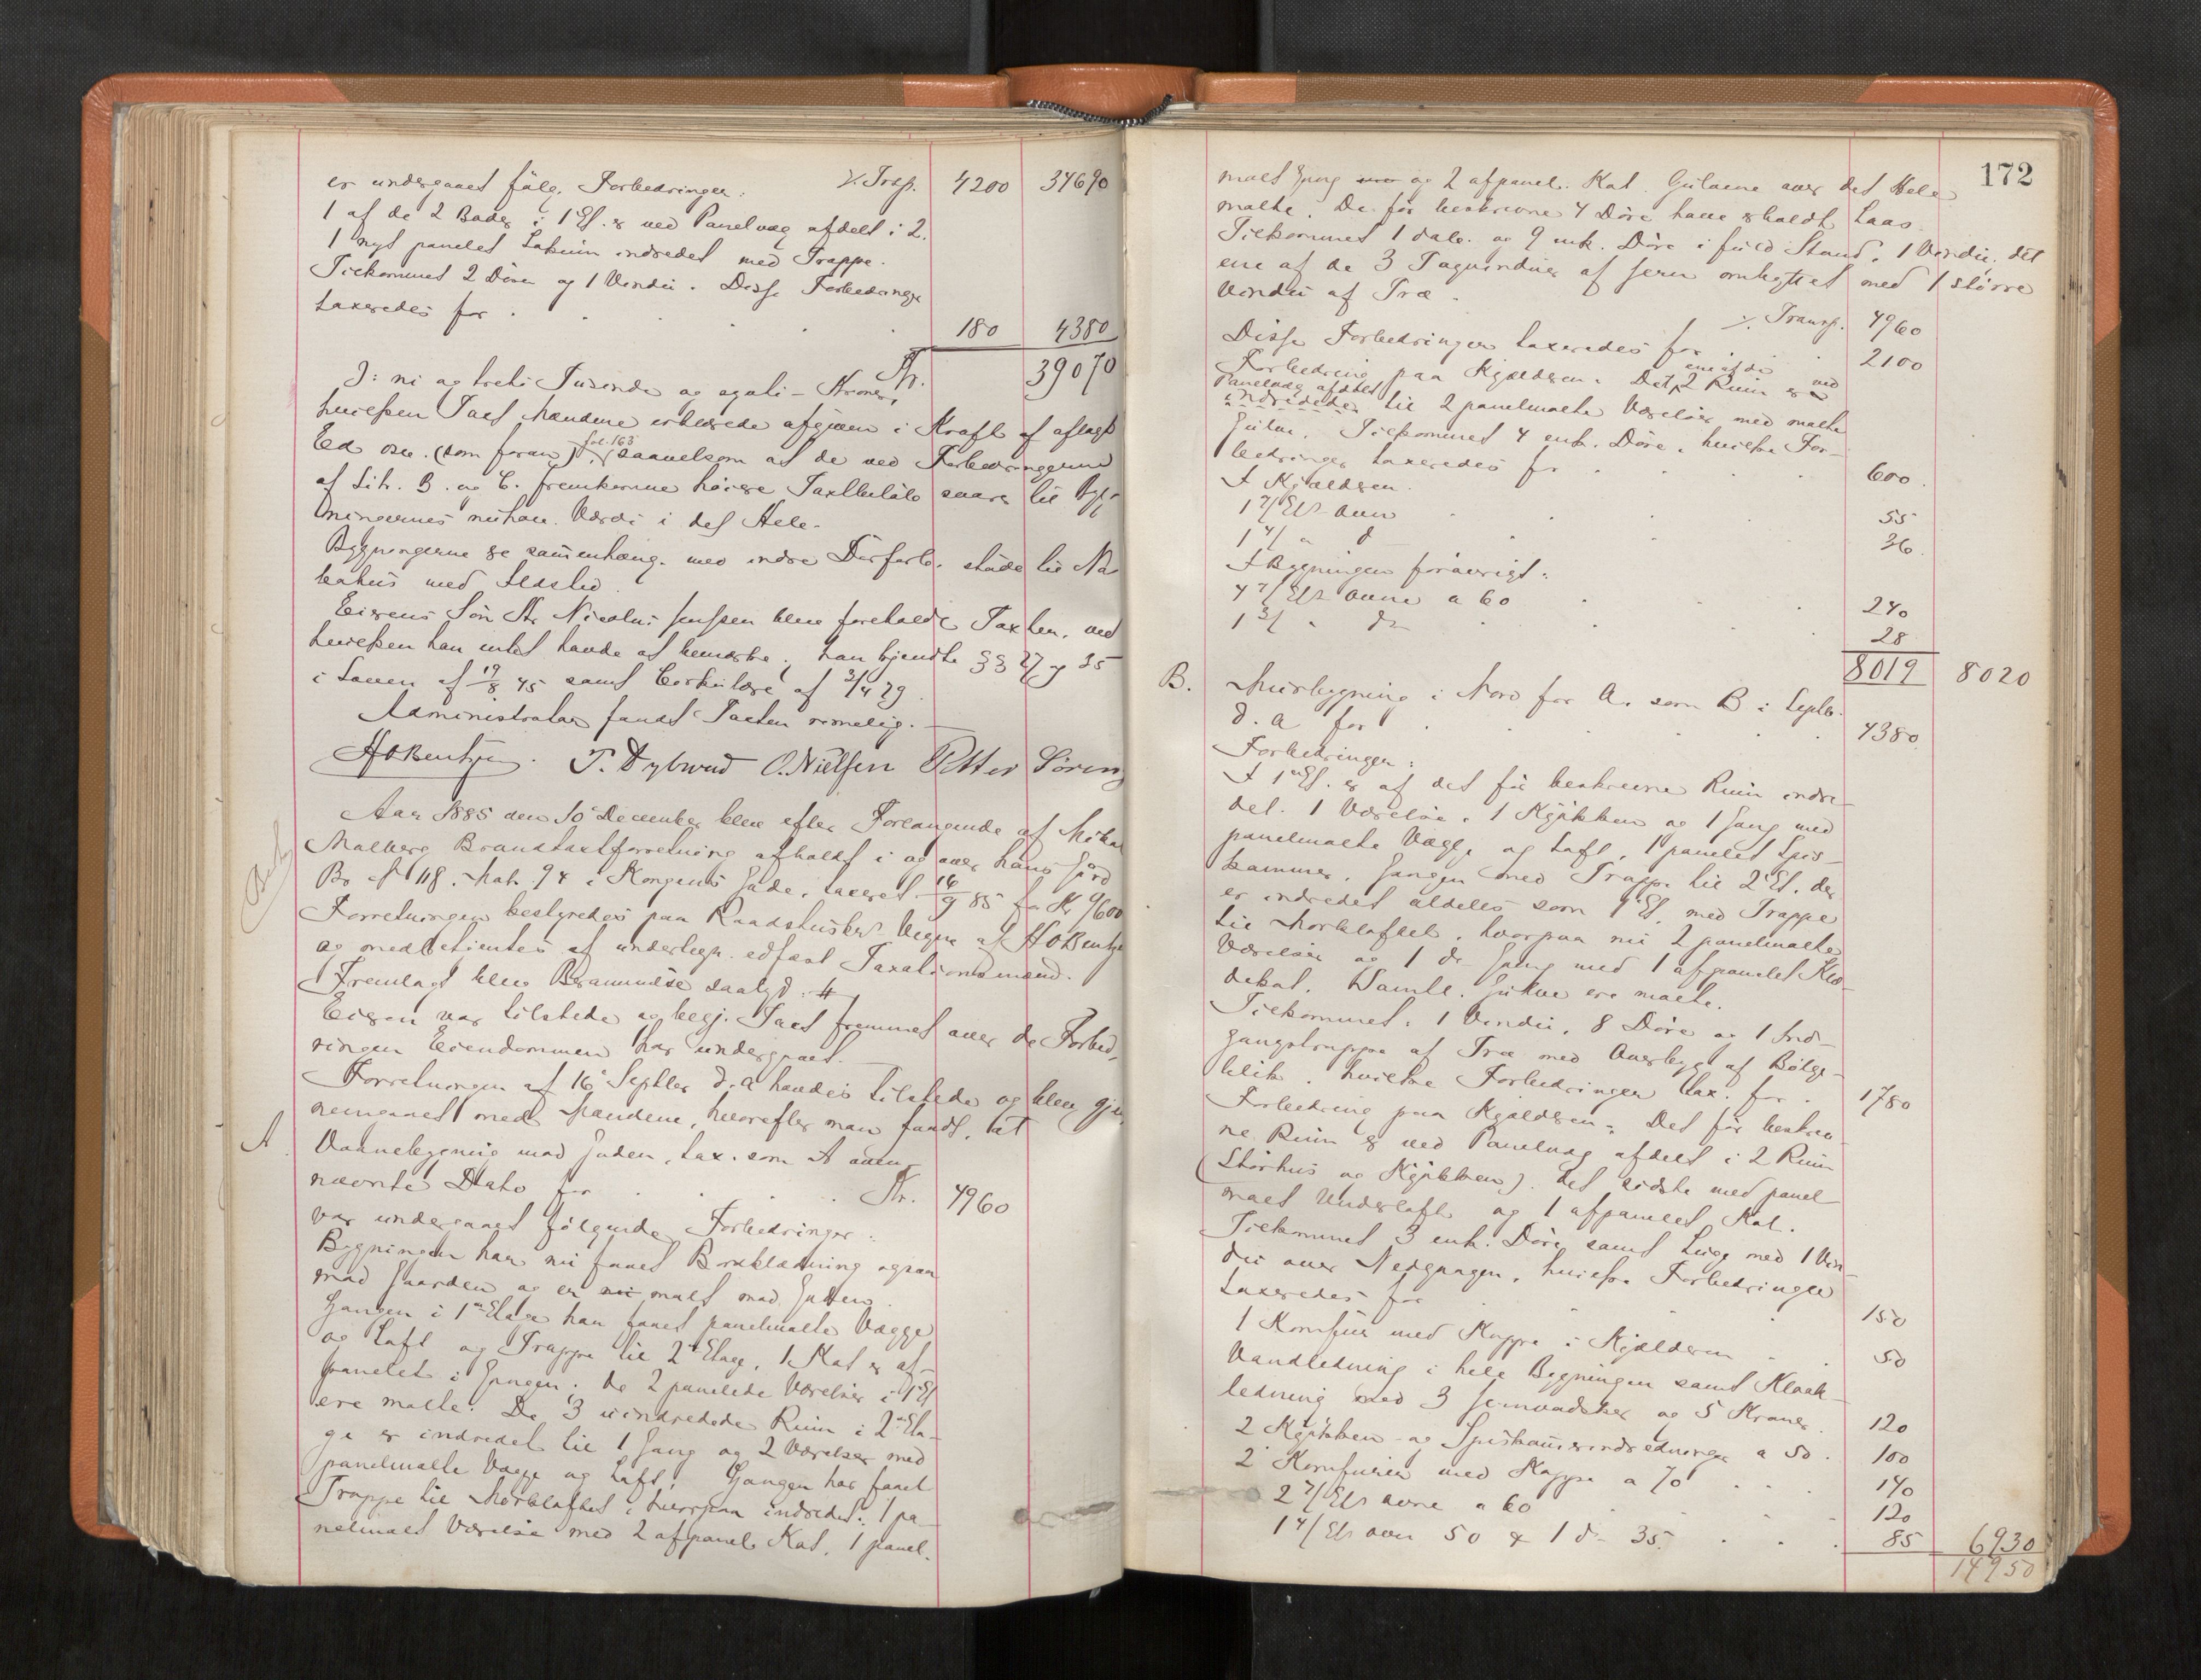 er undergaaet følg. Forbedringer: ./. Trsp. 4200 34690
1 af de 2 Boder i 1 Et. er ved Panelvæg afdelt i 2.
1 nyt panelet Lokum indredet med Trappe.
Tilkommet 2 Döre og 1 Vindu. Disse Forbedringer
taxeredes for . . . . . 180 4380
Kr. 39070
ɔ: ni og treti Tusinde og sytti - Kroner,
hvilken Taxt Mændene erklærede afgiven i Kraft af aflagt
Ed osv. (som foran) fol. 163 saavelsom at de ved Forbedringerne
af Litr. B. og C. fremkomne høiere Taxtbeløb svarer til Byg-
ningernes nuhav. Værdi i det Hele.
Bygningerne ere sammenhæng. med indre Dørforb. støde til Na-
bohus med Ildsted.
Eierens Søn Hr. Nicolai Jenssen blev foreholdt Taxten, ved
hvilken han intet havde at bemærke; han kjendte §§ 27 og 35
i Loven af 19/8 45 samt Cirkulære af 3/4 29.
Administrator fandt Taxten rimelig.
HOBentzen. T. Dybwad O. Nielsen Petter Sörens
Aar 1885 den 10de December blev efter Forlangende af Mikal
Malberg Brandtaxtforretning afholdt i og over hans Gård
Bo № 118. Mat. 94 i Kongens Gade, taxeret 16/9 85 for Kr 9600
Forretningen bestyredes paa Raadstuskr. Vegne af HOBentzen
og medbetientes af underteg. edfæst Taxationsmænd.
Fremlagt blev Berammelse saalyd: #
Eieren var tilstede og begj. Taxt fremmet over de Forbed-
ringer Eiendommen har undergaaet.
Forretningen af 16de Septbr d. A. havdes tilstede og blev gjen-
nemgaaet med Mændene, hvorefter man fandt, at
A. Vaaningsbygning mod Gaden, tax. som A oven
nævnte Dato for . . . . Kr. 4960
var undergaaet følgende Forbedringer:
Bygningen har nu faaet Bordklædning ogsaa
mod Gaarden og er malt mod Gaden.
Gangen i 1ste Etage har faaet panelmalte Vægge
og Loft og Trappe til 2den Etage. 1 Skab er af-
panelet i Gangen; de 2 panelede Værelser i 1 Et
ere malte. De 3 uindredede Rum i 2den Eta-
ge er indredet til 1 Gang og 2 Værelser med
panelmalte Vægge og Loft; Gangen har faaet
Trappe til Mørkloftet, hvorpaa indredet: 1 pa-
nelmalt Værelse med 2 afpanel. Skab, 1 panel-
172
malt Gang og 2 afpanel. Skab. Gulvene over det Hele
malte. De før beskrevne 4 Döre have erholdt Laas.
Tilkommet 1 dob. og 9 enk. Döre i fuld Stand, 1 Vindu, det
ene af de 3 Tagvinduer af Jern ombyttet med 1 større
Vindu af Træ.
./. Transp. 4960
Disse Forbedringer taxeredes for . . . 2100
Forbedring paa Kjælderen: Det ene af de 2 Rum er ved
Panelvæg afdelt indredede til 2 panelmalte Værelser med malte
Gulve. Tilkommet 4 enk. Döre, hvilke For-
bedringer taxeredes for . . . . 600.
I Kjælderen.
1 2/Ets Ovn . . . . 55
1 4/ " d . . . . 36.
I Bygningen forøvrigt:
4 2/Ets Ovne a 60 . . . . 240
1 3/ " do . . . . 28
8019 8020
B. Murbygning i Nord for A. som B i Septbr.
d. A for . . . . . 4380
Forbedringer:
I 1ste Et. er af det før beskrevne Rum indre-
det. 1 Værelse. 1 Kjøkken og 1 Gang med
panelmalte Vægge og Loft. 1 panelet Spis-
kammer. Gangen med Trappe til 2 Et. der
er indredet aldeles som 1 Et. med Trappe
til Mørkloftet, hvorpaa nu 2 panelmalte
Værelser og 1 do Gang med 1 afpanelet Klæ-
deskab. Samtl. Gulve ere malte.
Tilkommet: 1 Vindu, 8 Döre og 1 Ind-
gangstrappe af Træ med Overbyg af Bölge-
blik. hvilke Forbedringer tax. for . 1780
Forbedring paa Kjælderen: Det før beskrev-
ne Rum er ved Panelvæg afdelt i 2 Rum
(Størhus og Kjøkken). det sidste med panel-
malt Underloft og 1 afpanelet Skab.
Tilkommet 3 enk. Döre samt Luge med 1 Vin-
du over Nedgangen, hvilke Forbedringer
taxeredes for . . . . 150
1 Komfur med Kappe i Kjælderen . . 50
Vandledning i hele Bygningen samt Kloak-
ledning med 3 Jernvadsker og 5 Kraner. 120
2 Kjøkken- og Spiskammerindredninger a 50 . 100
2 Komfurer med Kappe a 70 . . . 140
2 2/Ets Ovne a 60 . . . 120
1 4/Ets Ovn 50 & 1 do 35. . . . 85 6930
14950